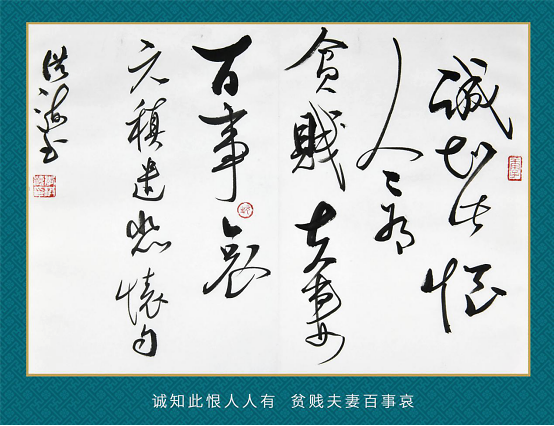 诚知此恨
人々有
貧賤夫妻
百事哀
元稹遣悲懷句
诚知此恨人人有 贫贱夫妻百事哀